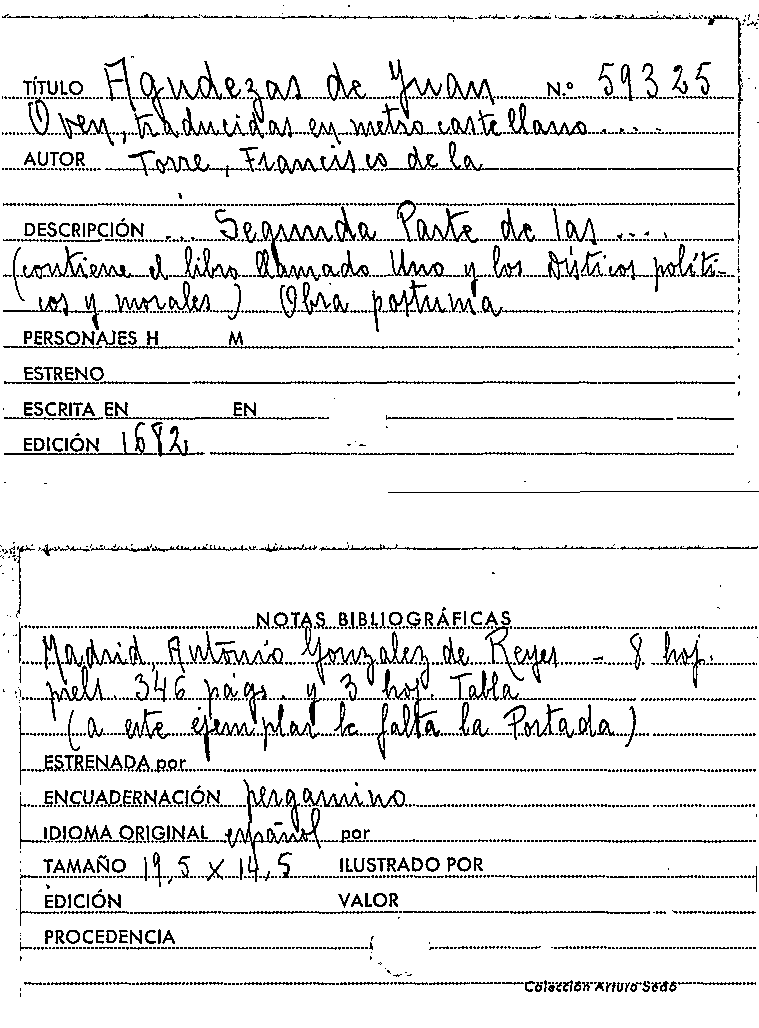 TÍTULO Agudezas de Juan N.º 59325
Oven, traducidas en metro castellano ....
AUTOR Torre, Francisco de la
DESCRIPCIÓN ... Segunda Parte de las ....
(contiene el libro llamado Uno y los Dísticos políti-
cos y morales) Obra postuma
PERSONAJES H M
ESTRENO
ESCRITA EN EN
EDICIÓN 1682
NOTAS BIBLIOGRÁFICAS
Madrid, Antonio Gonzalez de Reyes - 8 hoj.
prels. 346 págs. y 3 hoj. Tabla
(a este ejemplar le falta la Portada)
ESTRENADA por
ENCUADERNACIÓN pergamino
IDIOMA ORIGINAL español por
TAMAÑO 19,5 x 14,5 ILUSTRADO POR
EDICIÓN VALOR
PROCEDENCIA
Colección Arturo Sedó